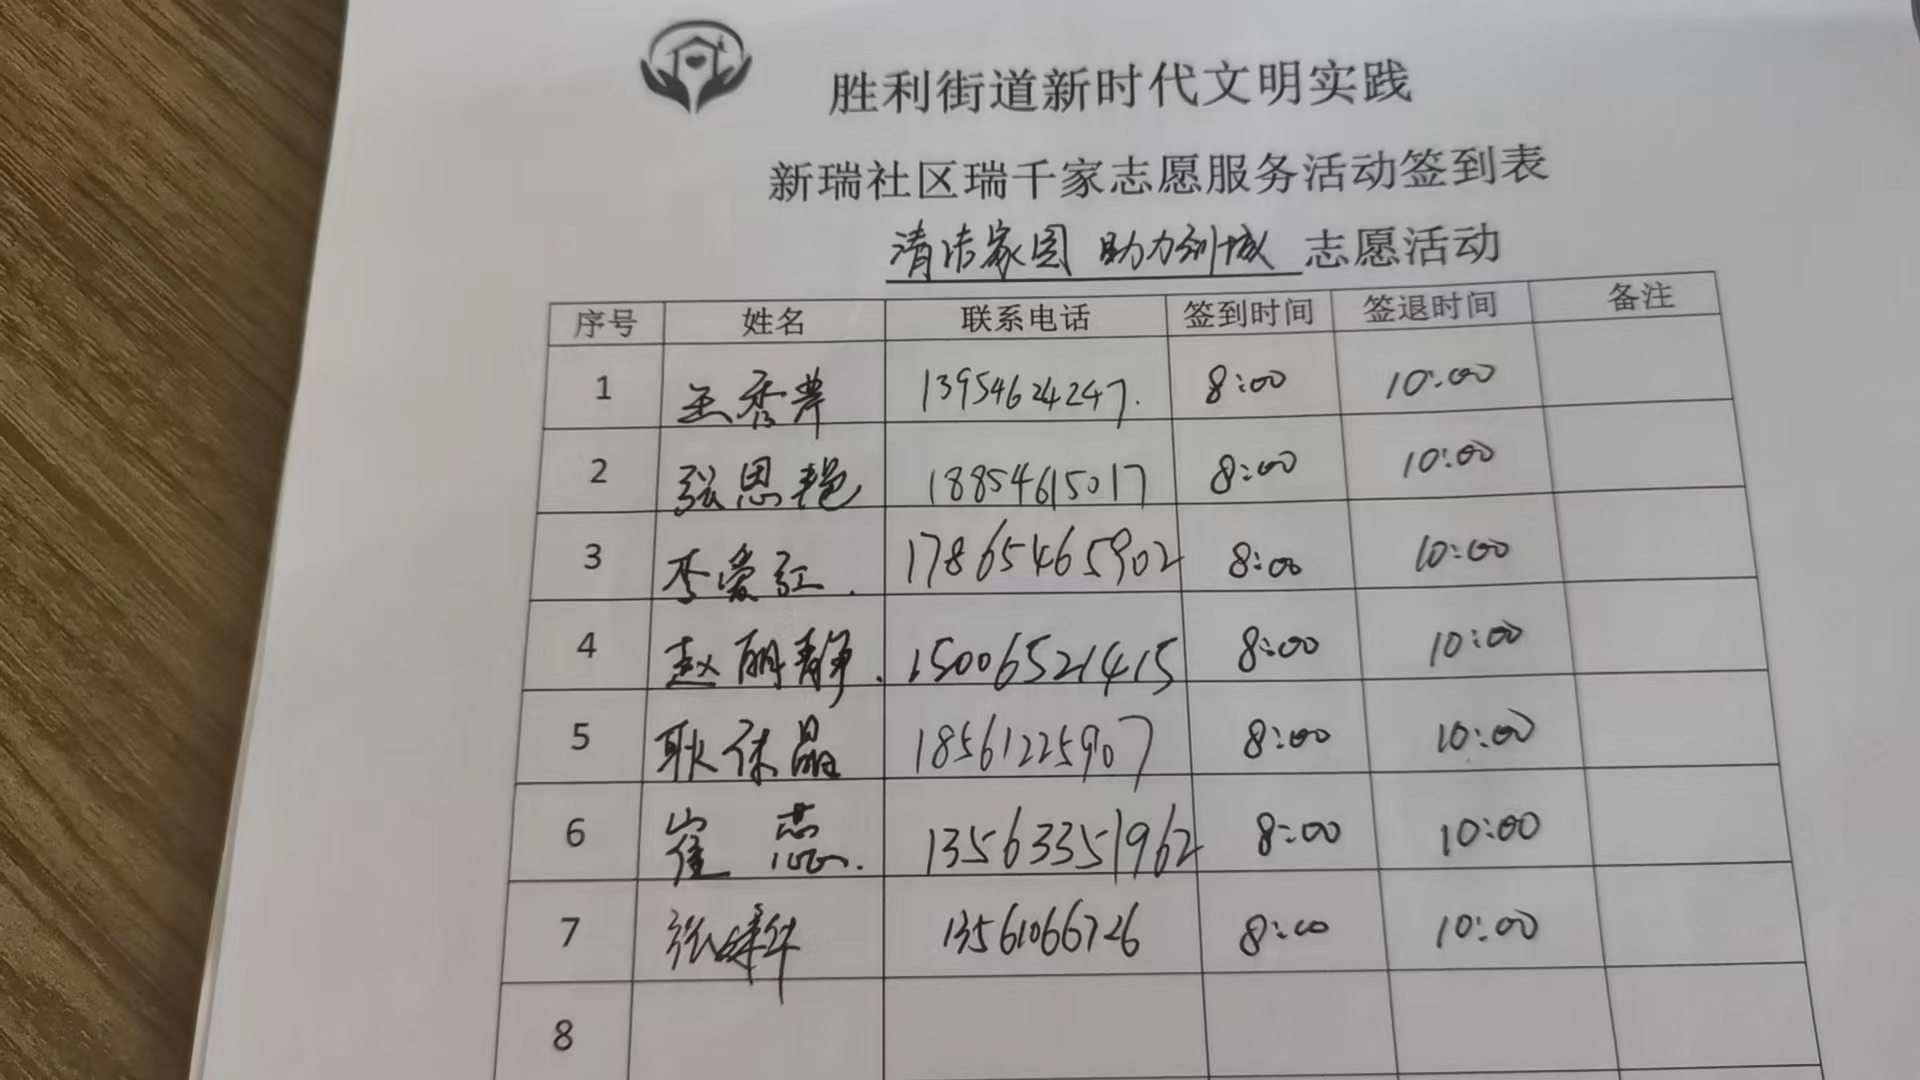 胜利街道新时代文明实践
新瑞社区瑞千家志愿服务活动签到表
清洁家园 助力创城 志愿活动
序号 姓名 联系电话 签到时间 签退时间 备注
1 王秀芹 13954624247. 8:00 10:00
2 张恩艳 18854615017 8:00 10:00
3 李爱红. 17865465902 8:00 10:00
4 赵丽静. 15006521415 8:00 10:00
5 耿休晶 18561225907 8:00 10:00
6 崔蕊. 13563351962 8:00 10:00
7 张 13561066726 8:00 10:00
8